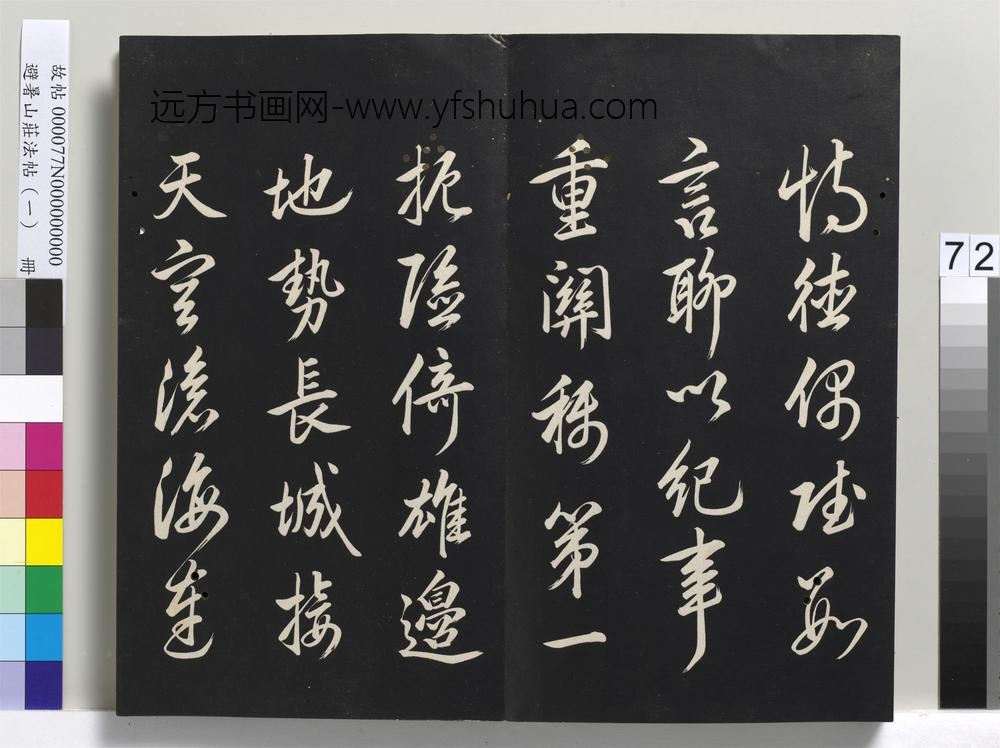 远方书画网-www.yfshuhua.com
恃德偶成数
言聊以纪事
重關稱第一
扼險倚雄邊
地勢長城接
天空滄海連
故帖 000077N000000000
避暑山莊法帖（一） 冊
72